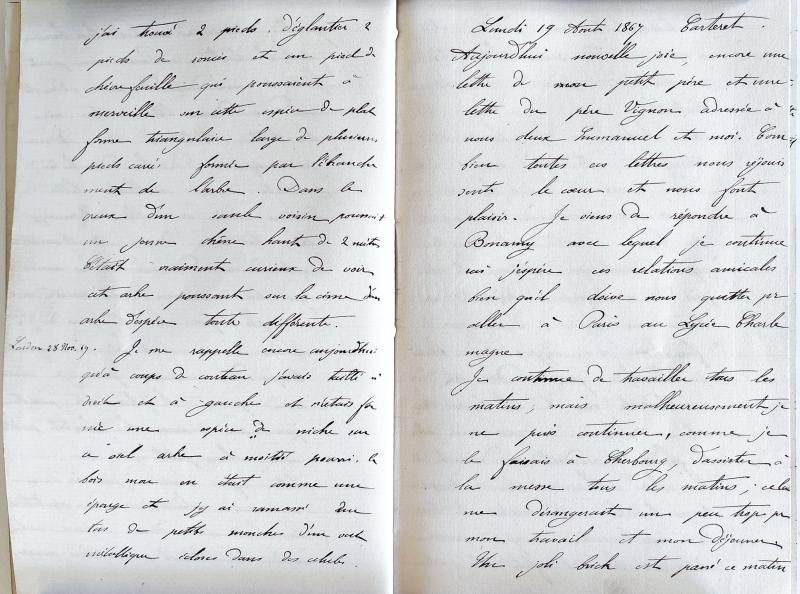 j'ai trouvé 2 pieds d'églantier 2
pieds de ronces et un pied de
chèvrefeuille qui poussaient à
merveille sur cette espèce de plate
forme triangulaire large de plusieurs
pieds carrés formée par l'ébranche
ment de l'arbre. Dans le
creux d'un saule voisin poussait
un jeune chêne haut de 2 mètres
C'était vraiment curieux de voir
cet arbre poussant sur la cime d'un
arbre d'espèce toute différente.
London 28 Nov. 69. Je me rappelle encore aujourd'hui
qu'à coups de couteau j'avais taillé à
droite et à gauche et m'étais for
mé une espèce de niche sur
cet arbre à moitié pourri. Le
bois mou en était comme une
éponge et j'y ai ramassé
de petites mouches d'un vert
métallique écloses dans des
Lundi 19 Août 1867 Carteret.
Aujourd'hui nouvelle joie, encore une
lettre de mon petit père et une
lettre du père Vignon adressée à
nous deux Emmanuel et moi. Com
bien toutes ces lettres nous réjouis
sent le cœur et nous font
plaisir. Je viens de répondre à
Bonamy avec lequel je continue
rai j'espère ces relations amicales
bien qu'il doive nous quitter pr
aller à Paris au Lycée Charle
magne
Je continue de travailler tous les
matins, mais malheureusement je
ne puis continuer, comme je
le faisais à Cherbourg, d'assister à
la messe tous les matins; cela
me dérangerait un peu trop pr
mon travail et mon déjeuner
Un joli brick est passé ce matin